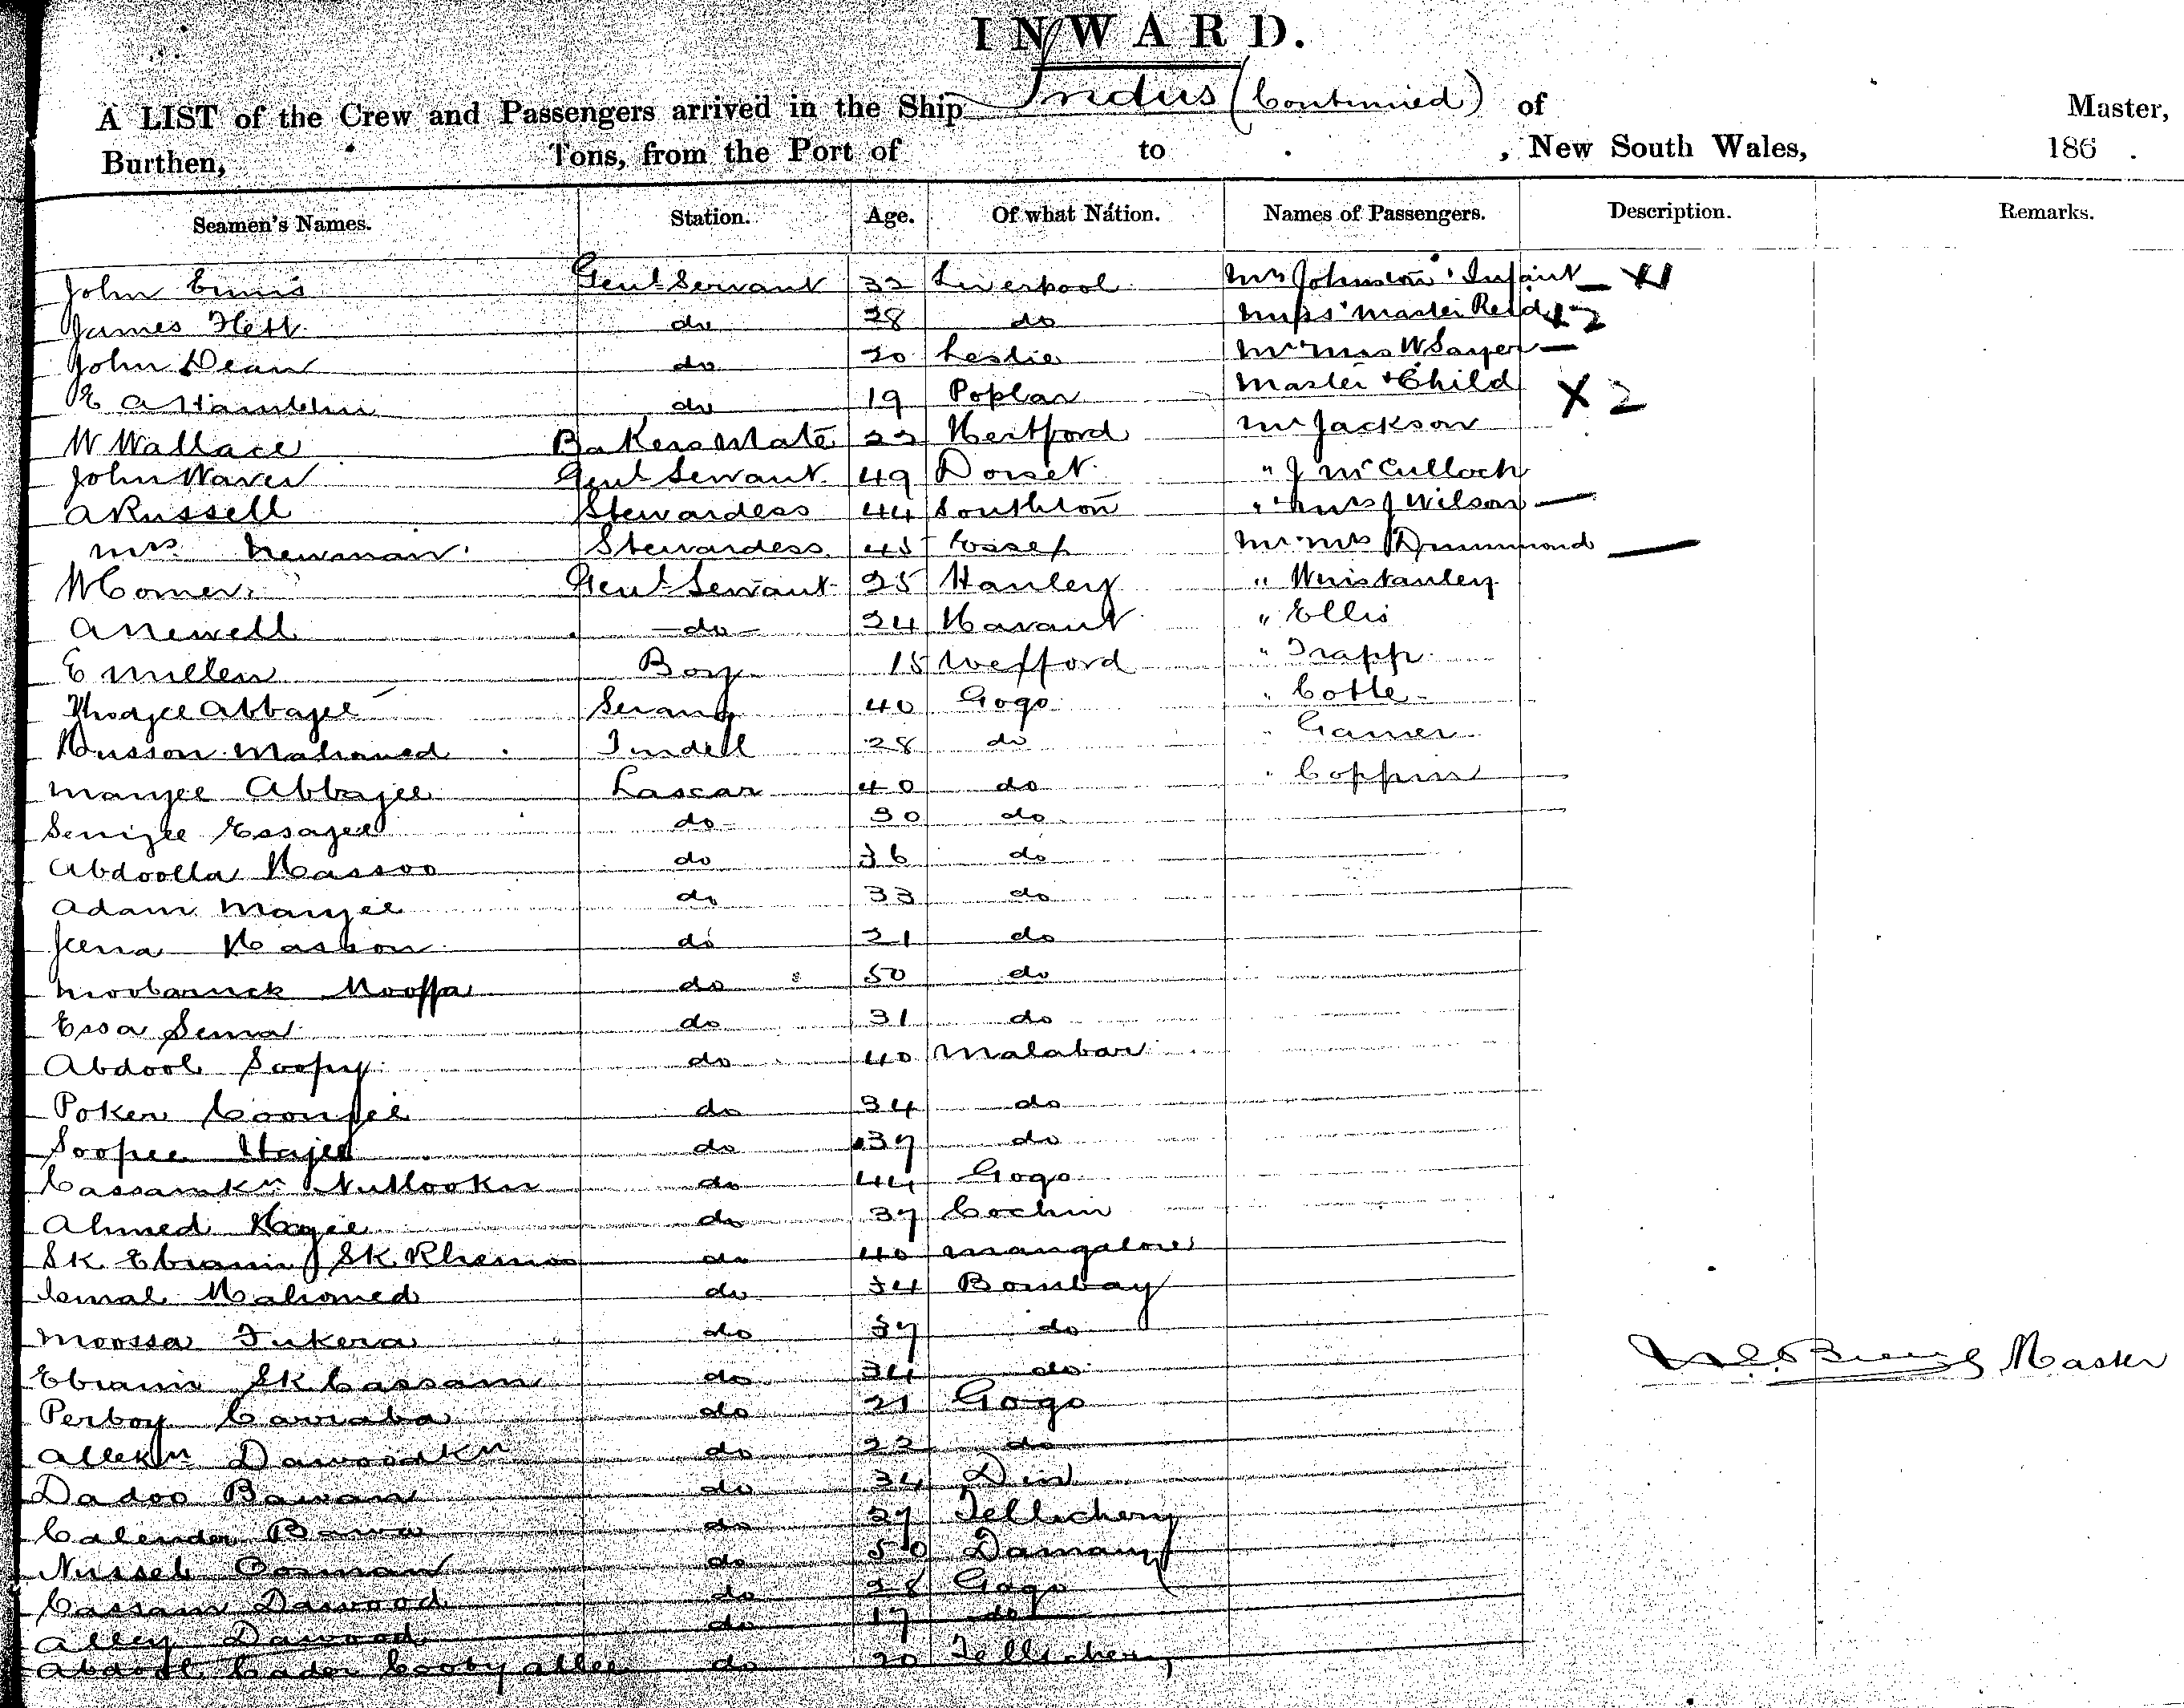 INWARD.
A LIST of the Crew and Passengers arrived in the Ship Indus (Continued) of Master,
Burthen, Tons, from the Port of to , New South Wales, 186 .
Seamen's Names. Station. Age. Of what Nation. Names of Passengers. Description. Remarks.
John Ennis Genl Servant 32 Liverpool Mrs Johnston & Infant X1
James Hett do 28 do Miss & Master Reid X2
John Dean do 20 Leslie Mr & Mrs W Sayer
E A Hamblin do 19 Poplar Master & Child X 2
W Wallace Bakers Mate 22 Hertford Mr Jackson
John Waver Genl Servant 49 Dorset " J McCulloch
A Russell Stewardess 44 Southton " & Mrs J Wilson
Mrs Newman Stewardess 45 Mr & Mrs Drummond
W Comer Genl Servant 25 Hanley " Winstanley
A Newell do 24 Havant " Ellis
E Millen Boy 15 " Trapp
Abbajee Serang 40 Gogo " Cotte
Husson Mahomed Tindell 28 do " Garner
Manjee Abbajee Lascar 40 do " Coppin
Essajee do 30 do
Abdoolla Hassoo do 36 do
Adam Manjee do 33 do
Jeena Hasson do 21 do
Moobarrick Moossa do 50 do
Essa Sema do 31 do
Abdool Soopy do 40 Malabar
Poker do 34 do
Soopee Hajee do 37 do
Cassamkn Nutlookn do 44 Gogo
Ahmed Hajee do 37 Cochin
SK Ebraim SK do 40 Mangalore
Ismal Mahomed do 34 Bombay
Moossa Fukera do 37 do
Ebraim SK Cassam do 34 do Master
Perboy do 21 Gogo
Allekn Dawoodkn do 22 do
Dadoo Bawan do 34 Diu
Calender Bawa do 27 Tellichery
Nusseb Oosman do 50 Damaun
Cassam Dawood do 28 Gogo
Alley Dawood do 17 do
Abdool Cader Cooty allee do 20 Tellichery